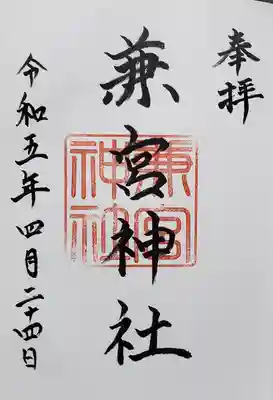 奉拝
兼宮神社
兼宮
神社
令和五年 四月二十四日